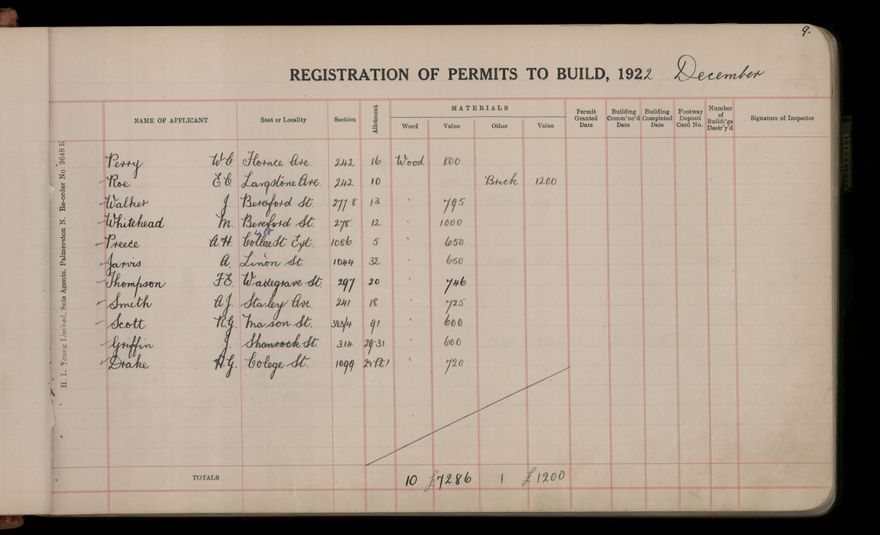 9.
REGISTRATION OF PERMITS TO BUILD, 1922 December
NAME OF APPLICANT Seet or Locality Section Allotment MATERIALS Wood Value Other Value Permit Granted Date Building Comm'nc'd Date Building Completed Date Footway Deposit Card No. Number of Buildi'gs Destr'y'd Signature of Inspector
Perry W C Flornce Ave. 242 16 Wood 800
Roe E C Langstone Ave 242 10 Brick 1200
Walker J Beresford St. 277.8 13 " 795
Whitehead M. Beresford St. 278 12 " 1000
Preece A H. St Ext. 1086 5 " 650
Jarvis A. Linon St. 1044 32 " 650
Thompson F E. Waldegrave St. 297 20 " 746
Smith A J. Stanley Ave. 241 18 " 725
Scott R G. Mason St. 383/4 91 " 600
Griffin J. Shamrock St. 314 29-31 " 600
Drake H. G. Colege St. 1099 " 720
TOTALS 10 £7286 1 £1200
H. L. Young Limited, Sole Agents, Palmerston N. Re-order No. 2648 K